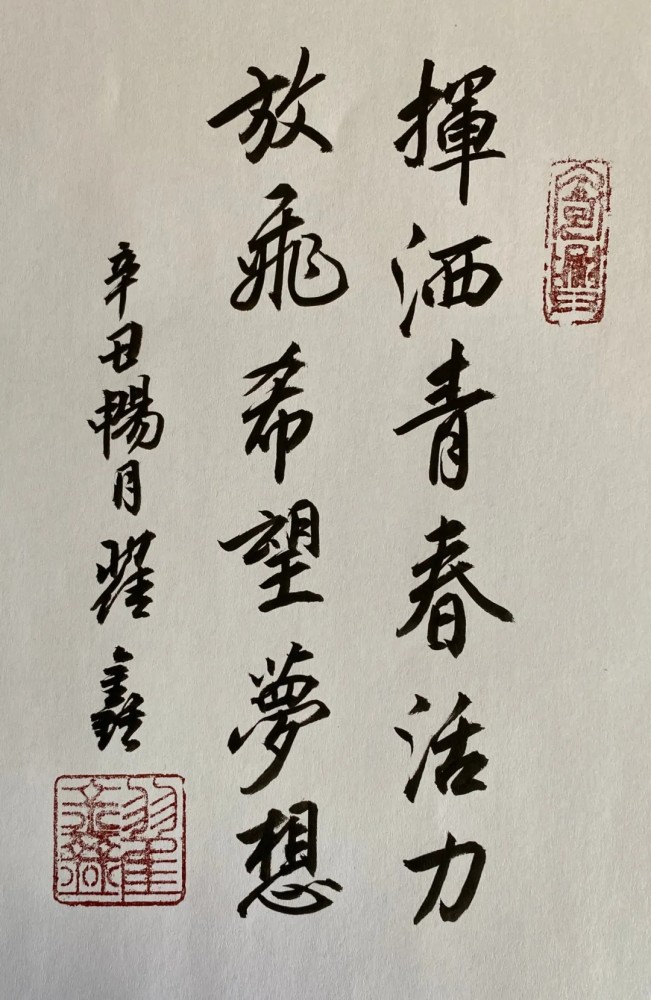 揮洒青春活力
放飛希望夢想
辛丑暢月翟鑫
翟鑫